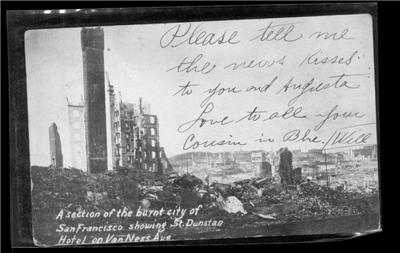 Please tell me
the news Kisses.
to you and Augusta
Love to all your
Cousin in Blue. Will
A section of the burnt city of
San Francisco showing St. Dunstan
Hotel on Van Ness Ave